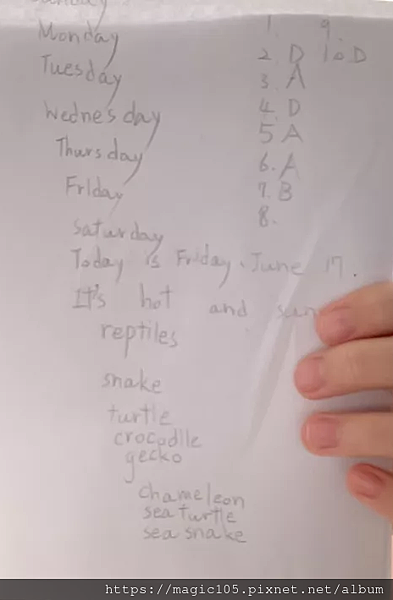 Monday
Tuesday
Wednesday
Thursday
Friday
Saturday
Today is Friday, June 17.
It's hot and
reptiles
snake
turtle
crocodile
gecko
chameleon
sea turtle
sea snake
1. 9.
2. D 10 D
3. A
4. D
5 A
6. A
7. B
8.
https://magic105.pixnet.net/album